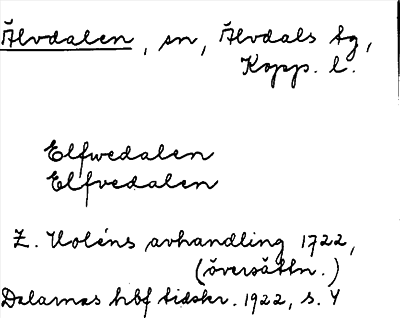 Älvdalen, sn, Älvdals tg,
Kopp. l.
Elfwedalen
Elfvedalen
Z. Holéns avhandling 1722,
(översättn.)
Dalarnas hbf tidskr. 1922, s. 4